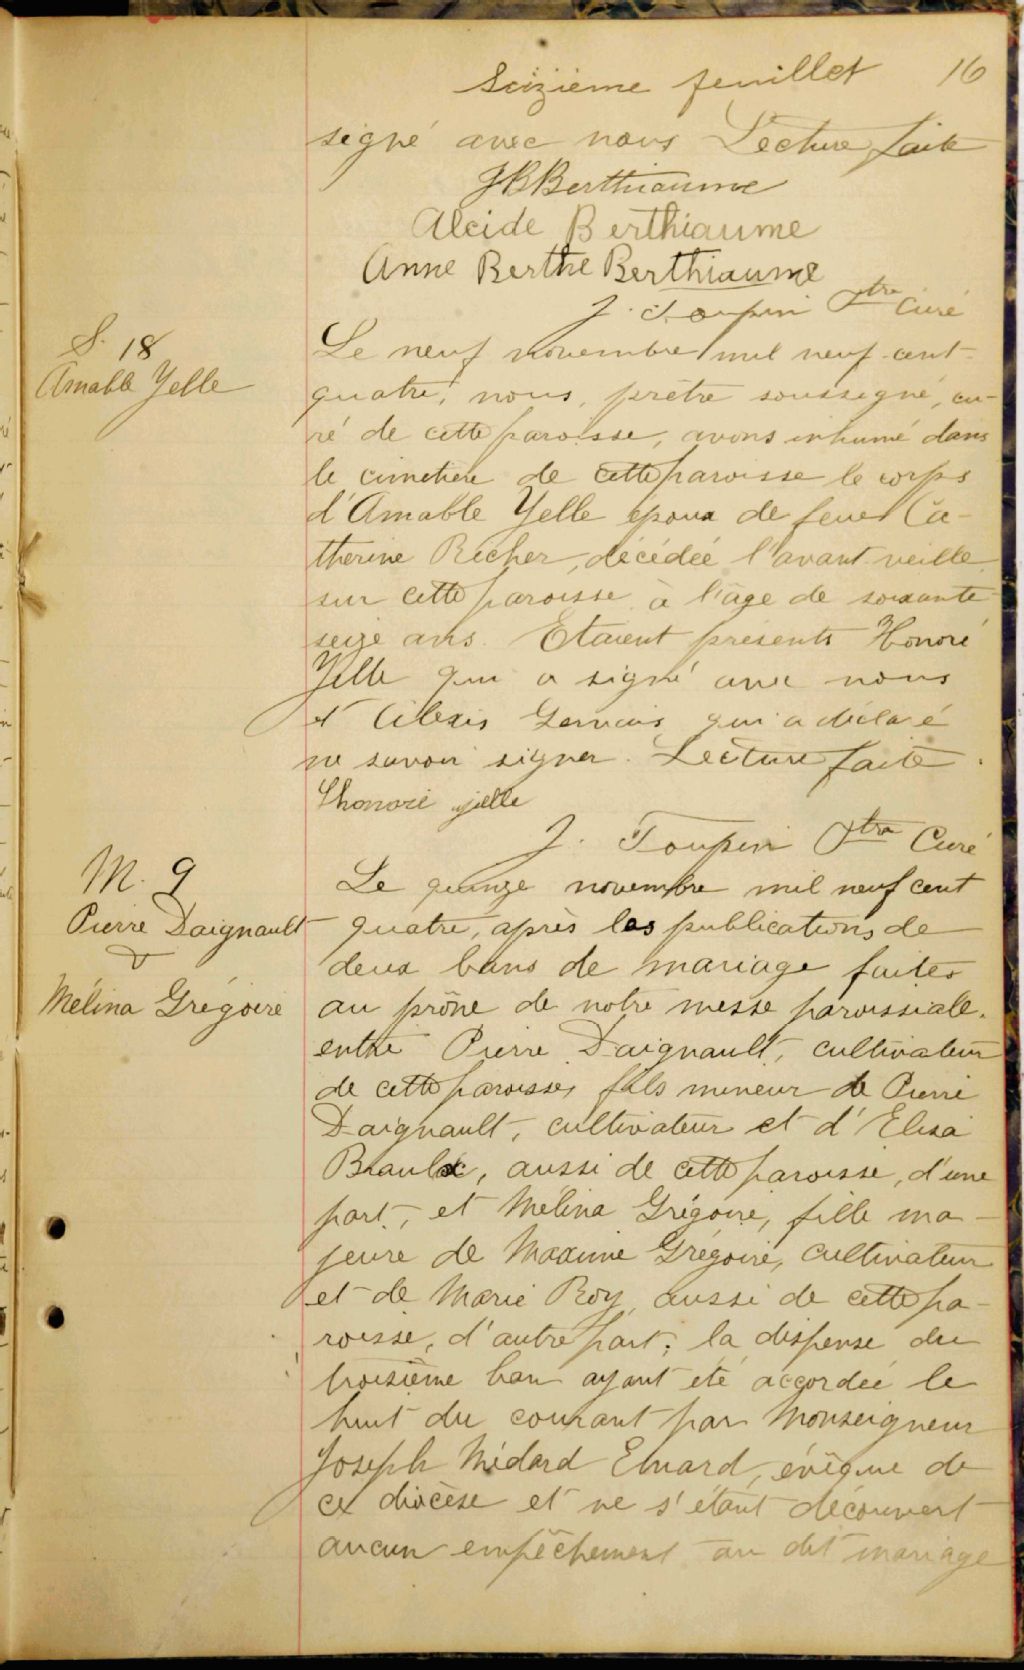 Seizième feuillet 16
signé avec nous Lecture faite
JBBerthiaume
Alcide Berthiaume
Anne Berthe Berthiaume
J. Toupin Ptre Curé
S. 18
Amable Yelle
Le neuf novembre mil neuf-cent-
quatre, nous, prêtre soussigné, cu-
ré de cette paroisse, avons inhumé dans
le cimetière de cette paroisse le corps
d'Amable Yelle époux de feue Ca-
therine Richer, décédée l'avant veille
sur cette paroisse à l'âge de soixante
seize ans. Etaient présents Honoré
Yelle qui a signé avec nous
et Alexis Gervais qui a déclaré
ne savoir signer. Lecture faite.
honoré yelle
J. Toupin Ptre Curé
M. 9
Pierre Daignault
&
Mélina Grégoire
Le quinze novembre mil neuf cent
quatre, après les publications de
deux bans de mariage faites
au prône de notre messe paroissiale.
entre Pierre Daignault, cultivateur
de cette paroisse, fils mineur de Pierre
Daignault, cultivateur et d'Elisa
Brault, aussi de cette paroisse, d'une
part, et Mélina Grégoire, fille ma-
jeure de Maxime Grégoire, cultivateur
et de Marie Roy, aussi de cette pa-
roisse, d'autre part; la dispense du
troisième ban ayant été accordée le
huit du courant par Monseigneur
Joseph Médard Emard, évêque de
ce diocèse et ne s'étant découvert
aucun empêchement au dit mariage